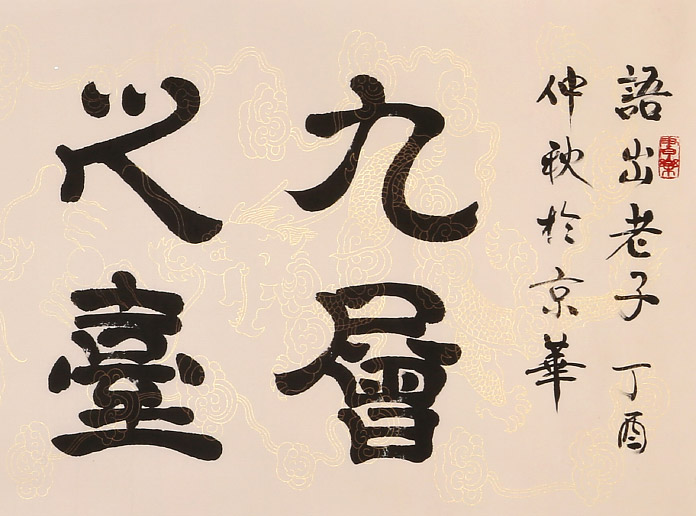 語出老子 丁酉
仲秋於京華
九層
之臺